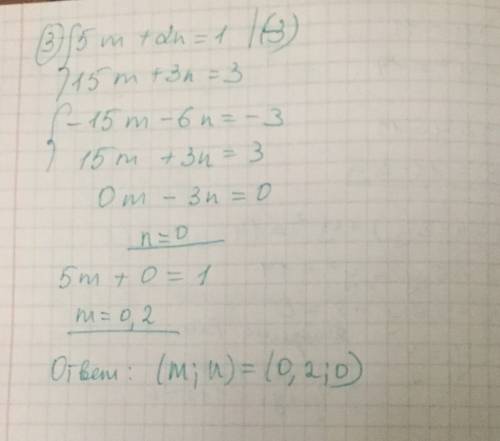 ③ { 5m + 2n = 1 | (-3)
15m + 3n = 3
{ -15m - 6n = -3
15m + 3n = 3
0m - 3n = 0
n = 0
5m + 0 = 1
m = 0,2
Ответ: (m; n) = (0,2; 0)